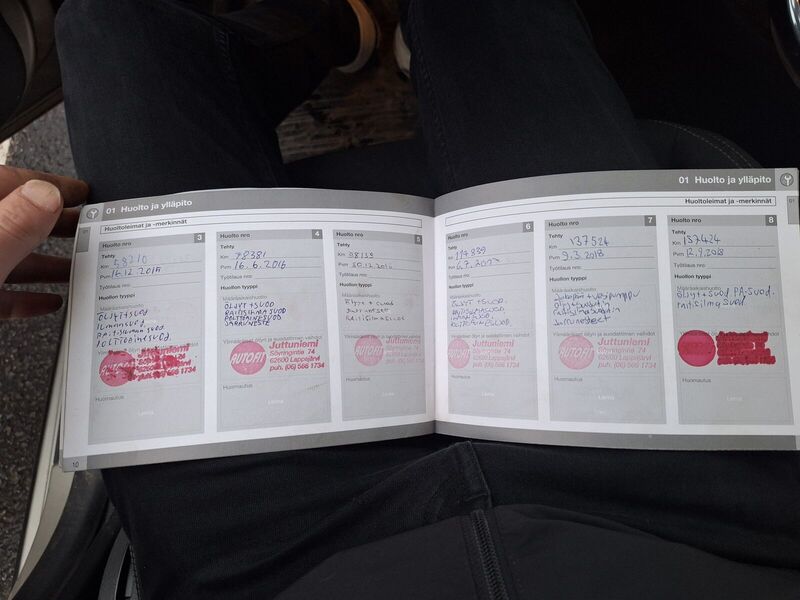 01 Huolto ja ylläpito
Huoltoleimat ja -merkinnät
Huolto nro 3
Tehty
Km 58210
Pvm 16.12.2015
Työtilaus nro:
Huollon tyyppi
Määräaikaishuolto:
ÖLJYT+SUOD
ILMANSUOD
RAITISILMAN SUOD
POLTTOAINESUOD.
Ylimääräiset öljyn ja suodattimen vaihdot
AUTOFIT
Huomautus
Leima
10
Huolto nro 4
Tehty
Km 78381
Pvm 16.6.2016
Työtilaus nro:
Huollon tyyppi
Määräaikaishuolto:
ÖLJYT+SUOD
RAITISILMA SUOD
POLTTOAINESUOD
JARRUNESTE
Ylimääräiset öljyn ja suodattimen vaihdot
AUTOFIT
Juttuniemi
Särmingintie 74
62600 Lappajärvi
puh. (06) 566 1734
Huomautus
Leima
Huolto nro 5
Tehty
Km 98139
Pvm 30.12.2016
Työtilaus nro:
Huollon tyyppi
Määräaikaishuolto:
RAITISILMASUOD
Ylimääräiset öljyn ja suodattimen vaihdot
AUTOFIT
Juttuniemi
62600 Lappajärvi
puh. (06) 566 1734
Huomautus
Leima
01 Huolto ja ylläpito
Huoltoleimat ja -merkinnät
01
Huolto nro 6
Tehty
Km 117839
Pvm 6.7.2017
Työtilaus nro:
Huollon tyyppi
Määräaikaishuolto:
ÖLJYT+SUOD.
RAITISILMASUOD
ILMANSUOD
POLTTOAINESUOD.
Ylimääräiset öljyn ja suodattimen vaihdot
AUTOFIT
Juttuniemi
Särmingintie 74
62600 Lappajärvi
puh. (06) 566 1734
Huomautus
Leima
Huolto nro 7
Tehty
Km 137524
Pvm 9.3.2018
Työtilaus nro:
Huollon tyyppi
Jakopää+vesipumppu
öljyt+suodatin
raitisilmasuodatin
Jarrunesteet
Ylimääräiset öljyn ja suodattimen vaihdot
AUTOFIT
Juttuniemi
Särmingintie 74
62600 Lappajärvi
puh. (06) 566 1734
Huomautus
Leima
Huolto nro 8
Tehty
Km 157424
Pvm 12.9.2018
Työtilaus nro:
Huollon tyyppi
Määräaikaishuolto:
öljyt+suod. PA-suod.
raitisilma suod
Ylimääräiset öljyn ja suodattimen vaihdot
Huomautus
Leima